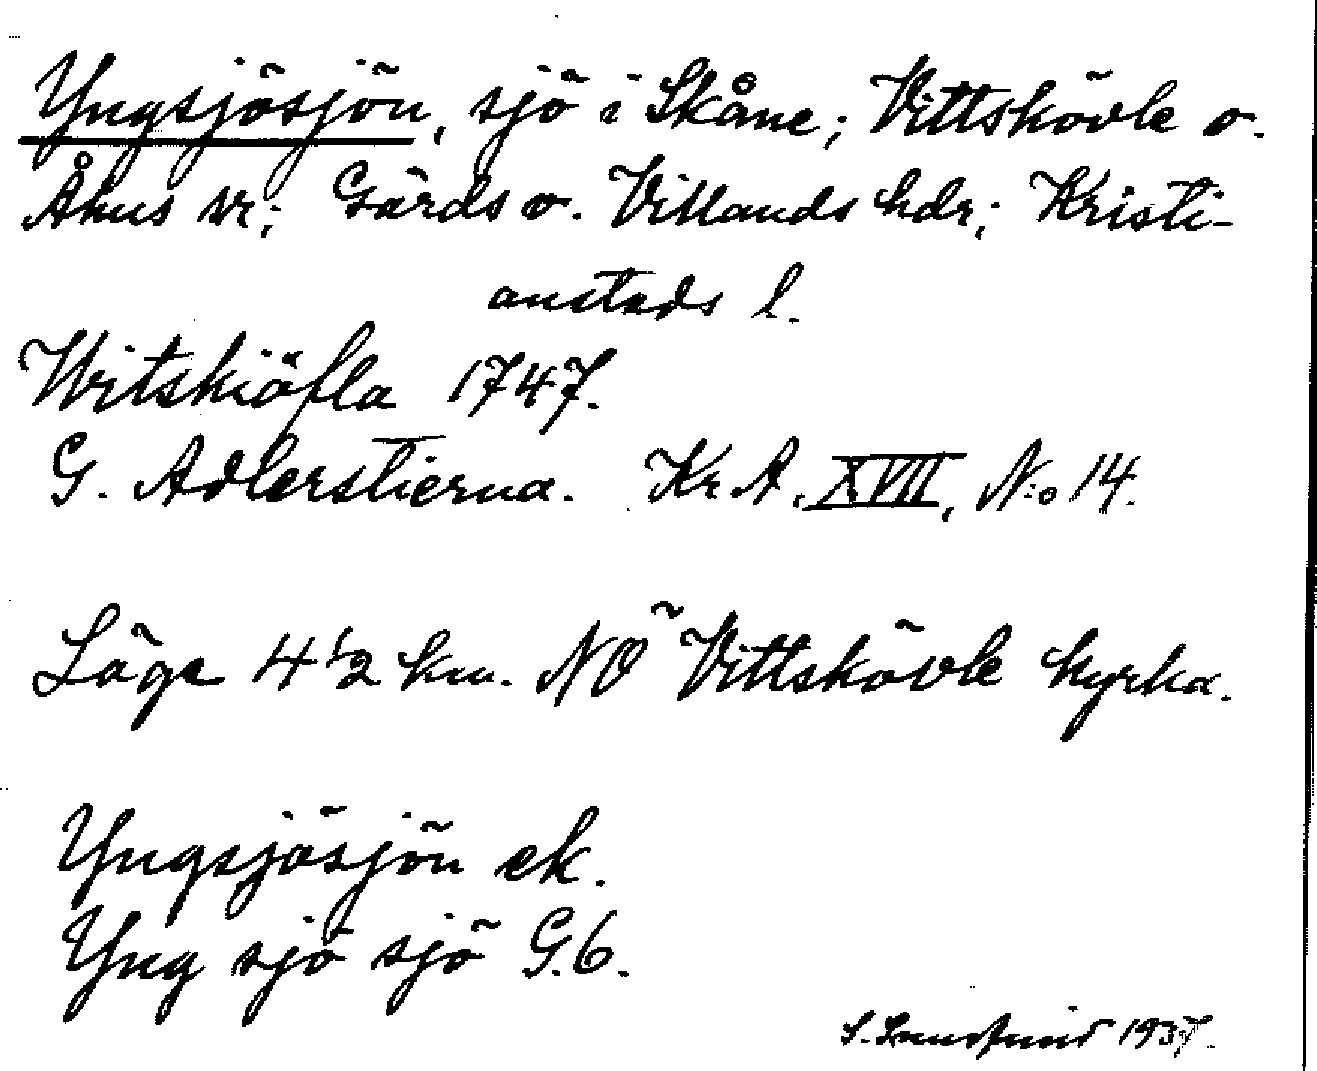 Yngsjösjön, sjö i Skåne; Vittskövle o.
Åhus sr; Gärds o. Villands hdr; Kristi-
anstads l.
Witskiöfla 1747.
G. Adlerstierna. Kr A, XVII, N:o 14.
Läge 4 1/2 km. NO Vittskövle kyrka.
Yngsjösjön ek.
Yng sjö sjö G.6.
S. 1937.